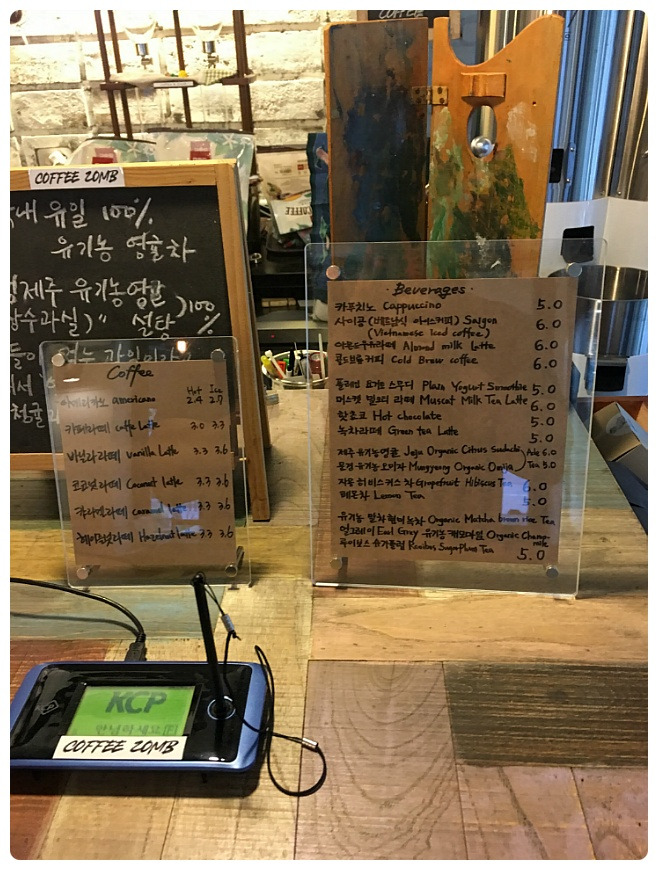 COFFEE
COFFEE ZOMB
유일 100%
유기농 영귤차
제주 유기농영귤
설탕 100%
Coffee
Hot Ice
아메리카노 americano 2.4 2.7
카페라떼 caffe Latte 3.0 3.3
바닐라라떼 vanilla Latte 3.3 3.6
코코넛라떼 Coconut Latte 3.3 3.6
캬라멜라떼 3.3 3.6
헤이즐넛라떼 Hazelnut latte 3.3 3.6
· Beverages ·
카푸치노 Cappuccino 5.0
사이공 (베트남식 아이스커피) Saigon 6.0
(Vietnamese Iced coffee)
Almond milk Latte 6.0
콜드브루 커피 Cold Brew coffee 6.0
플레인 요거트 스무디 Plain Yogurt Smoothie 5.0
머스켓 밀크티 라떼 Muscat Milk Tea Latte 6.0
핫초코 Hot chocolate 5.0
녹차라떼 Green tea Latte 5.0
제주 유기농영귤 Jeju Organic Citrus Sudachi Ade 6.0
문경 유기농 오미자 Mungyeong Organic Omija Tea 5.0
자몽 히비스커스차 Grapefruit Hibiscus Tea 6.0
레몬차 Lemon Tea 5.0
유기농 말차현미녹차 Organic Matcha brown rice Tea
얼그레이 Earl Grey 유기농 캐모마일 Organic Chamomile
루이보스 슈가플럼 Rooibos Sugarplum Tea 5.0
KCP
안녕하세요
COFFEE ZOMB